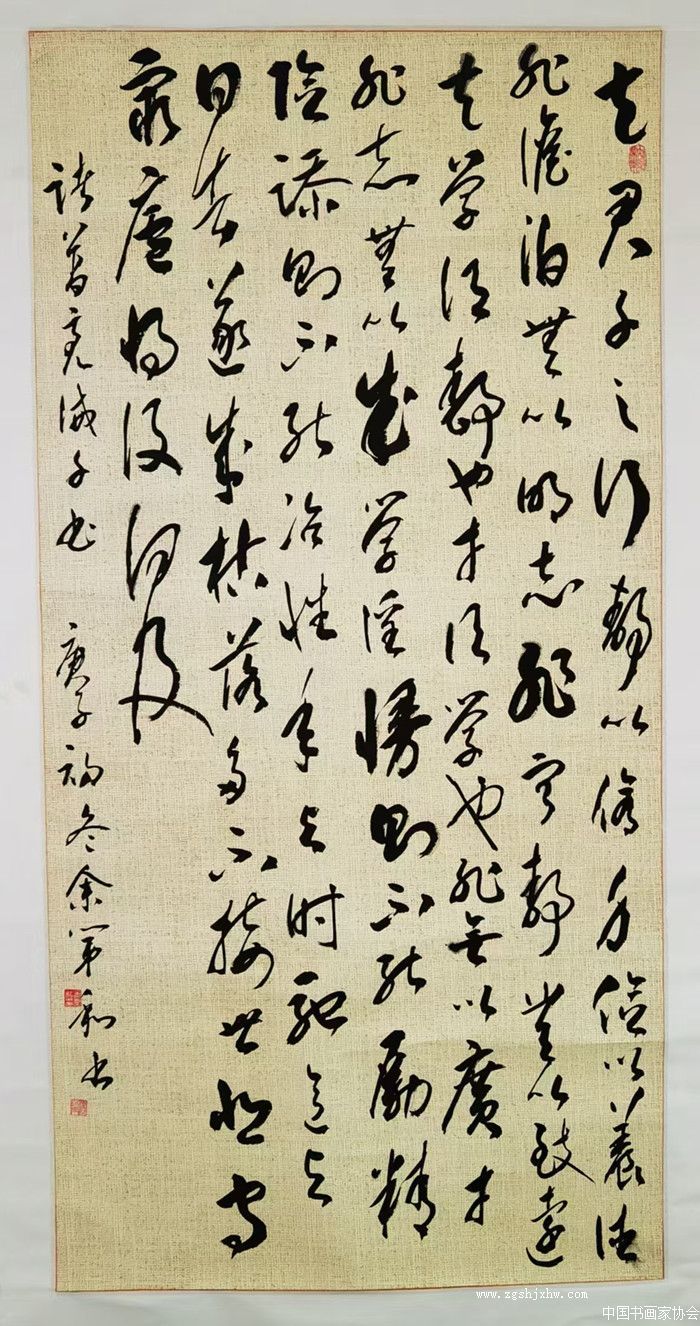 夫君子之行静以脩身俭以養德
非澹泊無以明志非宁静無以致遠
夫学须静也才须学也非無以廣才
非志無以成学淫慢则不能励精
险躁则不能冶性年与时驰意与
日去遂成枯落多不接世悲守
窮廬将復何及
诸葛亮诫子书 庚子初冬余军和书
www.zgshjxhw.com
中国书画家协会